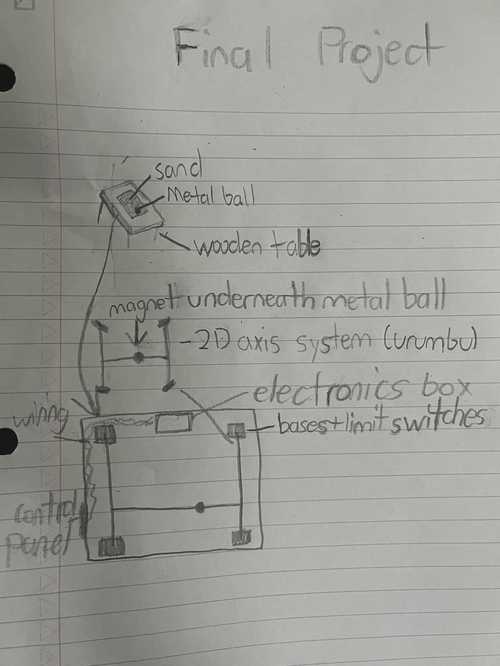 Final Project
sand
Metal ball
wooden table
magnet underneath metal ball
-2D axis system (urumbu)
electronics box
wiring
bases+limit switches
control
panel